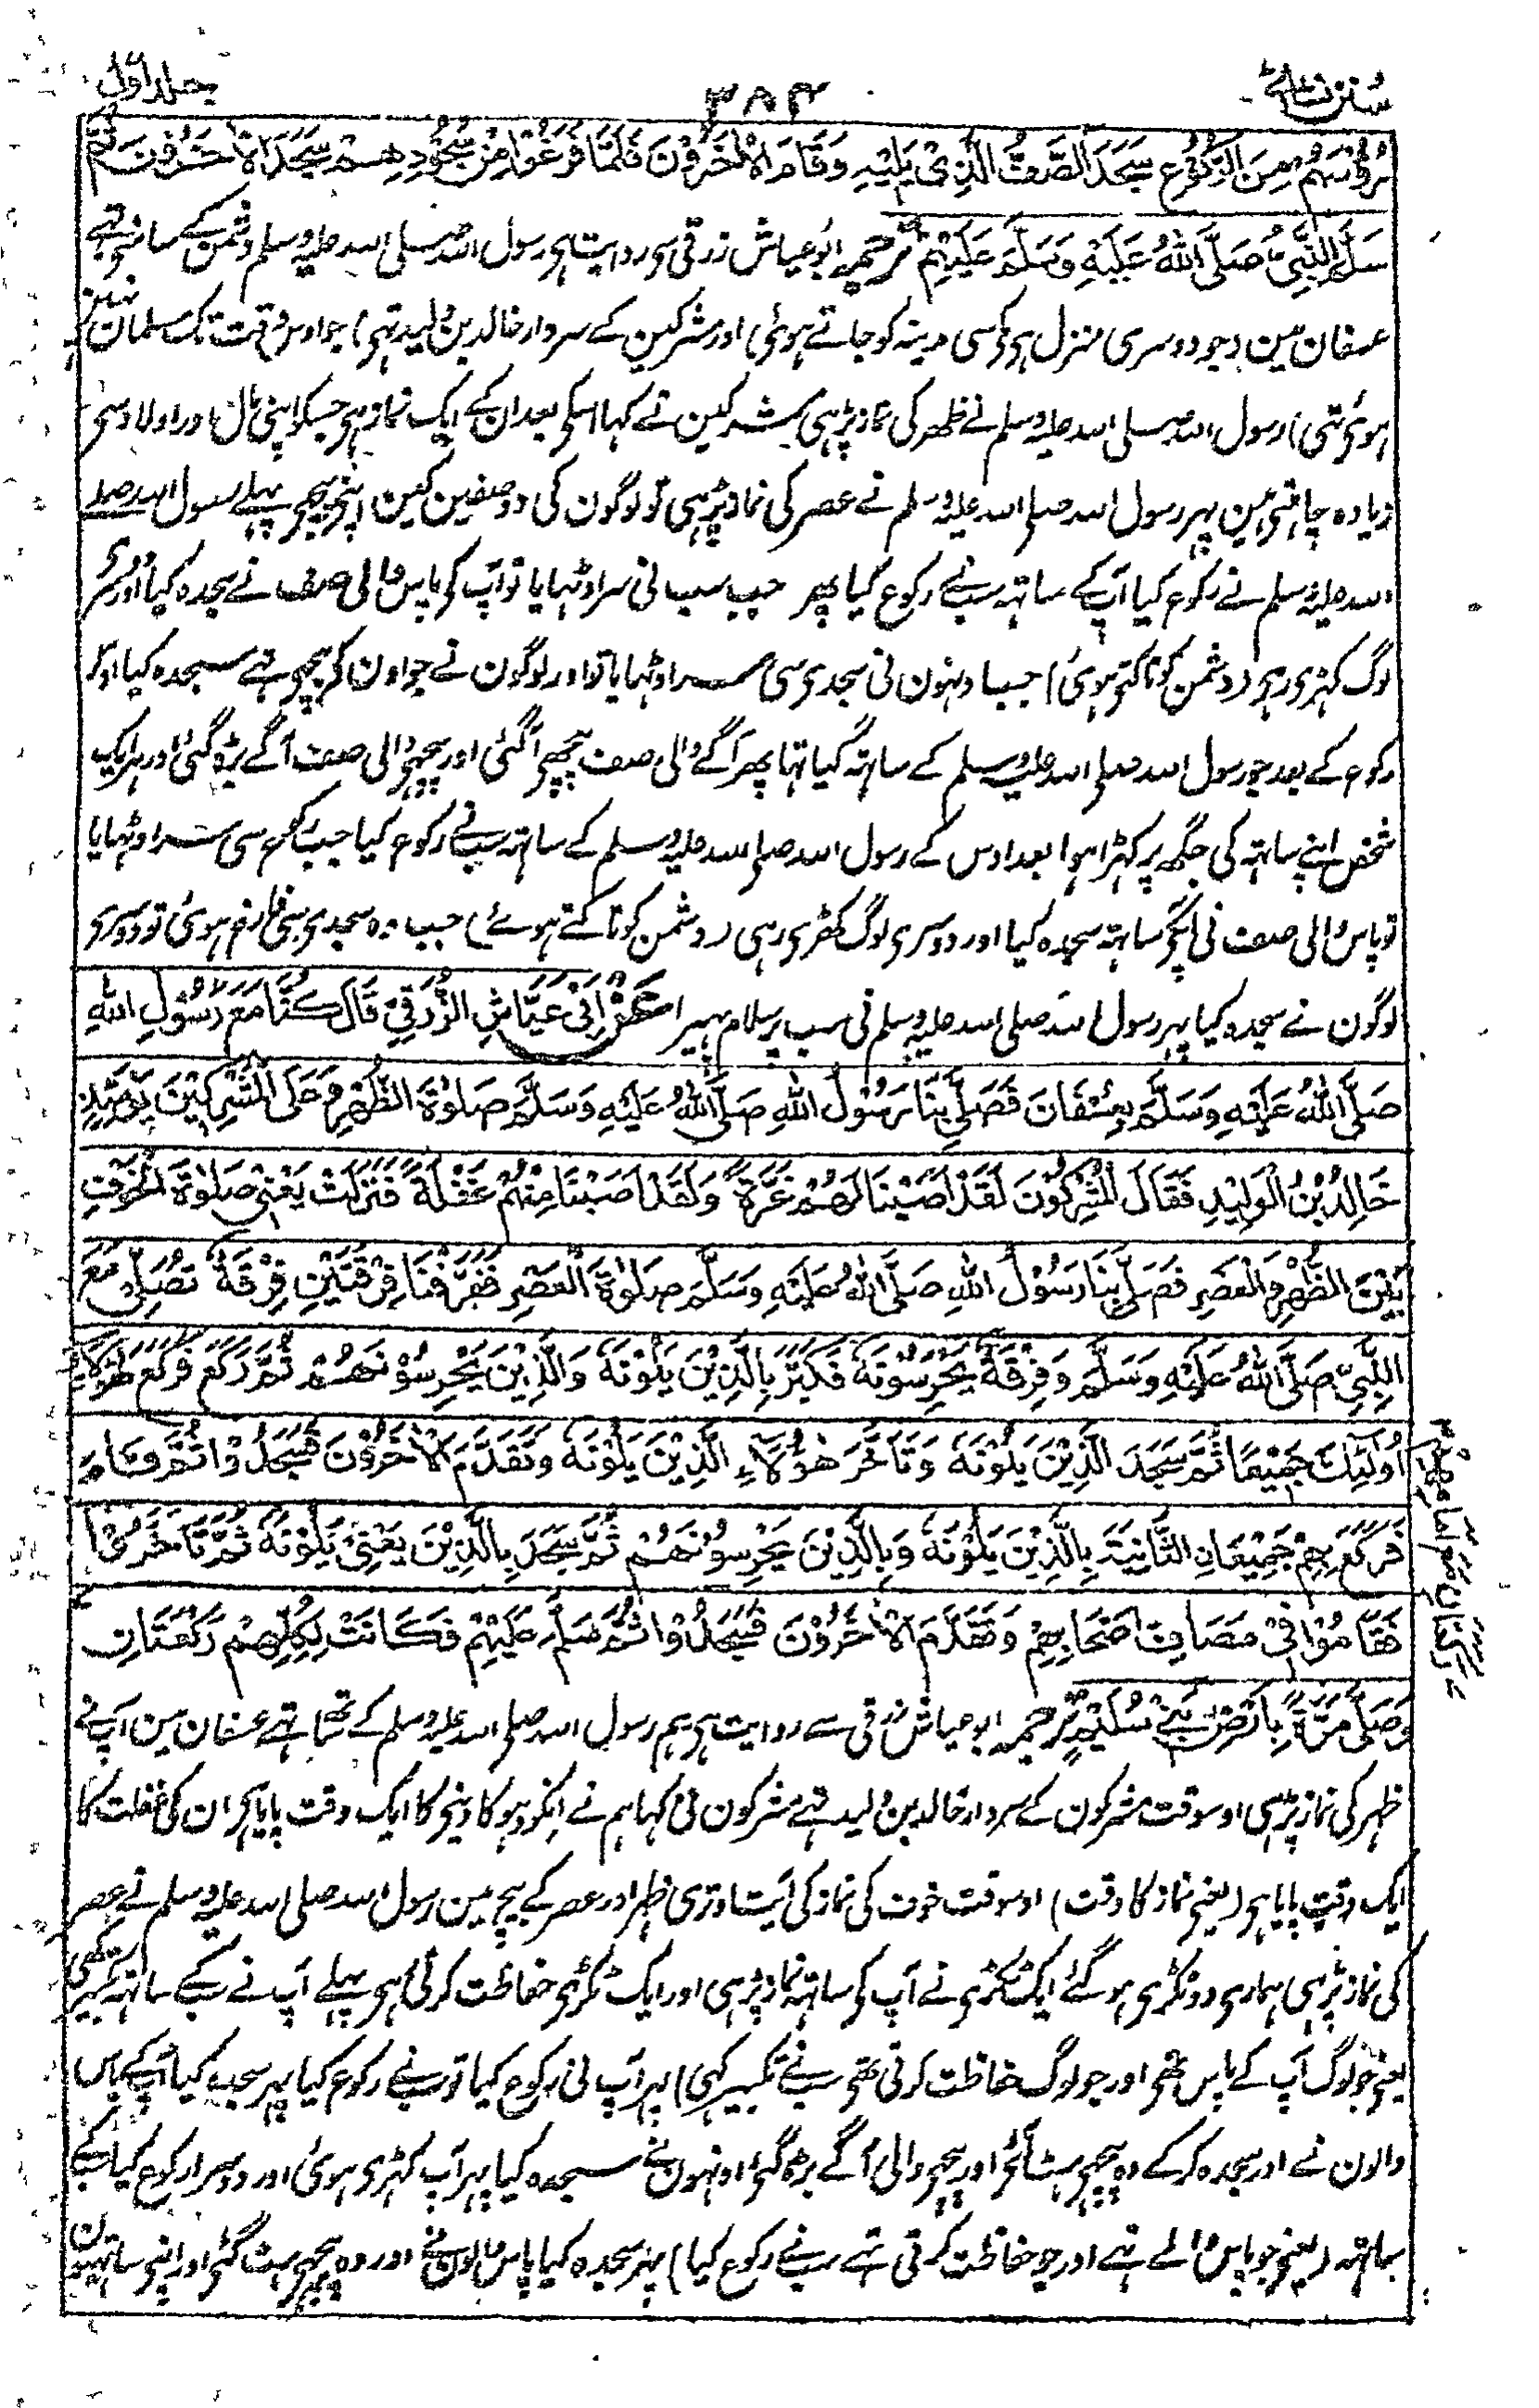 سنن نسائی
۳۸۴
جلد اول
رُؤُسَهُمْ مِنَ الرُّكُوْعِ سَجَدَ الصَّفُّ الَّذِيْ يَلِيْهِ وَقَامَ الْاٰخَرُوْنَ فَلَمَّا فَرَغُوْا مِنْ سُجُوْدِهِمْ سَجَدَ الْاٰخَرُوْنَ ثُمَّ
سَلَّمَ النَّبِيُّ صَلَّى اللهُ عَلَيْهِ وَسَلَّمَ عَلَيْهِمْ ترجمہ ابو عیاش زرقی سی روایت ہی رسول اللہ صلی اللہ علیہ وسلم دشمن کے سامنے تہے
عسفان مین (جو دوسری منزل ہی مکی سی مدینہ کو جاتے ہوئی) اور مشرکین کے سردار خالد بن ولید تہی (جو اوس وقت تک مسلمان نہین
ہوئی تہی) رسول اللہ صلی اللہ علیہ وسلم نے ظہر کی نماز پڑہی مشرکین نے کہا اسکی بعد ان کے ایک نماز ہی جسکو اپنی مال اور اولاد سی
زیادہ چاہتی ہین پہر رسول اللہ صلی اللہ علیہ وسلم نے عصر کی نماز پڑہی تو لوگون کی دو صفین کین اپنی پیچہی پہلے رسول اللہ صلے
اللہ علیہ وسلم نے رکوع کیا آپ کے ساتہہ سبنے رکوع کیا پھر جب سب نی سر اوٹہایا تو آپ کی پاس والی صف نے سجدہ کیا اور دوسری
لوگ کہڑی رہی (دشمن کو تاکتی ہوئی) جب اونہون نی سجدی سی سر اوٹہایا تو اور لوگون نے جو اون کی پیچہی تہے سجدہ کیا اوس
رکوع کے بعد جو رسول اللہ صلی اللہ علیہ وسلم کے ساتہہ کیا تہا پھر آگے والی صف پیچہی آگئی اور پیچہی والی صف آگے بڑہ گئی اور ہر ایک
شخص اپنے ساتہی کی جگہہ پر کہڑا ہوا بعد اوس کے رسول اللہ صلی اللہ علیہ وسلم کے ساتہہ سبنے رکوع کیا جب رکوع سی سر اوٹہایا
تو پاس والی صف نی آپکی ساتہہ سجدہ کیا اور دوسری لوگ کھڑی رہی (دشمن کو تاکتے ہوئے) جب وہ سجدی سی فارغ ہوئی تو دوسری
لوگون نے سجدہ کیا پہر رسول اللہ صلی اللہ علیہ وسلم نی سب پر سلام پہیرا عَنْ اَبِيْ عَيَّاشِ الزُّرَقِيِّ قَالَ كُنَّا مَعَ رَسُوْلِ اللهِ
صَلَّى اللهُ عَلَيْهِ وَسَلَّمَ بِعُسْفَانَ فَصَلّٰى بِنَا رَسُوْلُ اللهِ صَلَّى اللهُ عَلَيْهِ وَسَلَّمَ صَلٰوةَ الظُّهْرِ وَعَلَى الْمُشْرِكِيْنَ يَوْمَئِذٍ
خَالِدُ بْنُ الْوَلِيْدِ فَقَالَ الْمُشْرِكُوْنَ لَقَدْ اَصَبْنَا لَهُمْ غِرَّةً وَلَقَدْ اَصَبْنَا مِنْهُمْ غَفْلَةً فَنَزَلَتْ يَعْنِيْ صَلٰوةَ الْخَوْفِ
بَيْنَ الظُّهْرِ وَالْعَصْرِ فَصَلّٰى بِنَا رَسُوْلُ اللهِ صَلَّى اللهُ عَلَيْهِ وَسَلَّمَ صَلٰوةَ الْعَصْرِ فَفَرَّقَنَا فِرْقَتَيْنِ فِرْقَةً تُصَلِّيْ مَعَ
النَّبِيِّ صَلَّى اللهُ عَلَيْهِ وَسَلَّمَ وَفِرْقَةً يَحْرُسُوْنَهٗ فَكَبَّرَ بِالَّذِيْنَ يَلُوْنَهٗ وَالَّذِيْنَ يَحْرُسُوْنَهُمْ ثُمَّ رَكَعَ فَرَكَعَ هٰؤُلَاءِ
اُولٰئِكَ جَمِيْعًا ثُمَّ سَجَدَ الَّذِيْنَ يَلُوْنَهٗ وَتَاَخَّرَ هٰؤُلَاءِ الَّذِيْنَ يَلُوْنَهٗ وَتَقَدَّمَ الْاٰخَرُوْنَ فَسَجَدُوْا ثُمَّ قَامَ
فَرَكَعَ بِهِمْ جَمِيْعَانِ الثَّانِيَةَ بِالَّذِيْنَ يَلُوْنَهٗ وَبِالَّذِيْنَ يَحْرُسُوْنَهُمْ ثُمَّ سَجَدَ بِالَّذِيْنَ يَعْنِيْ يَلُوْنَهٗ ثُمَّ تَاَخَّرُوْا
فَقَامُوْا فِيْ مَصَافِّ اَصْحَابِهِمْ وَتَقَدَّمَ الْاٰخَرُوْنَ فَسَجَدُوْا ثُمَّ سَلَّمَ عَلَيْهِمْ فَكَانَتْ لِكُلِّهِمْ رَكْعَتَانِ
وَصَلّٰى مَرَّةً بِاَرْضِ بَنِيْ سُلَيْمٍ ترجمہ ابو عیاش زرقی سے روایت ہی ہم رسول اللہ صلی اللہ علیہ وسلم کے ساتہہ تہے عسفان مین آپ نے
ظہر کی نماز پڑہی اوسوقت مشرکون کے سردار خالد بن ولید تہے مشرکون نی کہا ہم نے انکو دہوکا دینی کا ایک وقت پایا ہی ان کی غفلت کا
ایک وقت پایا ہی (یعنی نماز کا وقت) اوسوقت خوف کی نماز کی آیت اوتری ظہر اور عصر کے بیچ مین رسول اللہ صلی اللہ علیہ وسلم نے عصر
کی نماز پڑہی ہماری دو ٹکڑی ہو گئے ایک ٹکڑی نے آپ کی ساتہہ نماز پڑہی اور ایک ٹکڑی حفاظت کرتی رہی پہلے آپ نے سبکے ساتہہ تکبیر کہی
یعنی جو لوگ آپ کے پاس تھی اور جو لوگ حفاظت کرتی تھی سبنے تکبیر کہی) پہر آپ نی رکوع کیا تو سبنے رکوع کیا پہر سجدہ کیا آپکے پاس
والون نے اور سجدہ کر کے وہ پیچہی ہٹ آئی اور پیچہی والی آگے بڑہ گئی اونہون نے سجدہ کیا پہر آپ کہڑی ہوئی اور دوسرا رکوع کیا سبکے
ساتہہ (یعنی جو پاس والے تہے اور جو حفاظت کرتی تہے سبنے رکوع کیا) پہر سجدہ کیا پاس والون نے اور وہ پیچہی ہٹ گئی اور اپنی ساتہیون